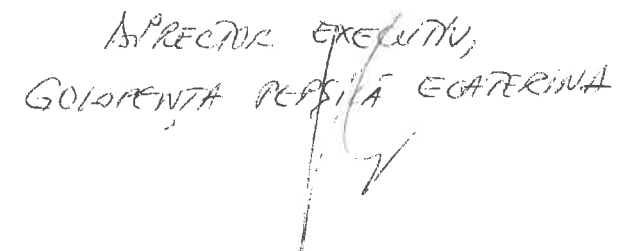 DIRECTOR EXECUTIV,
GOLOPENȚA ECATERINA